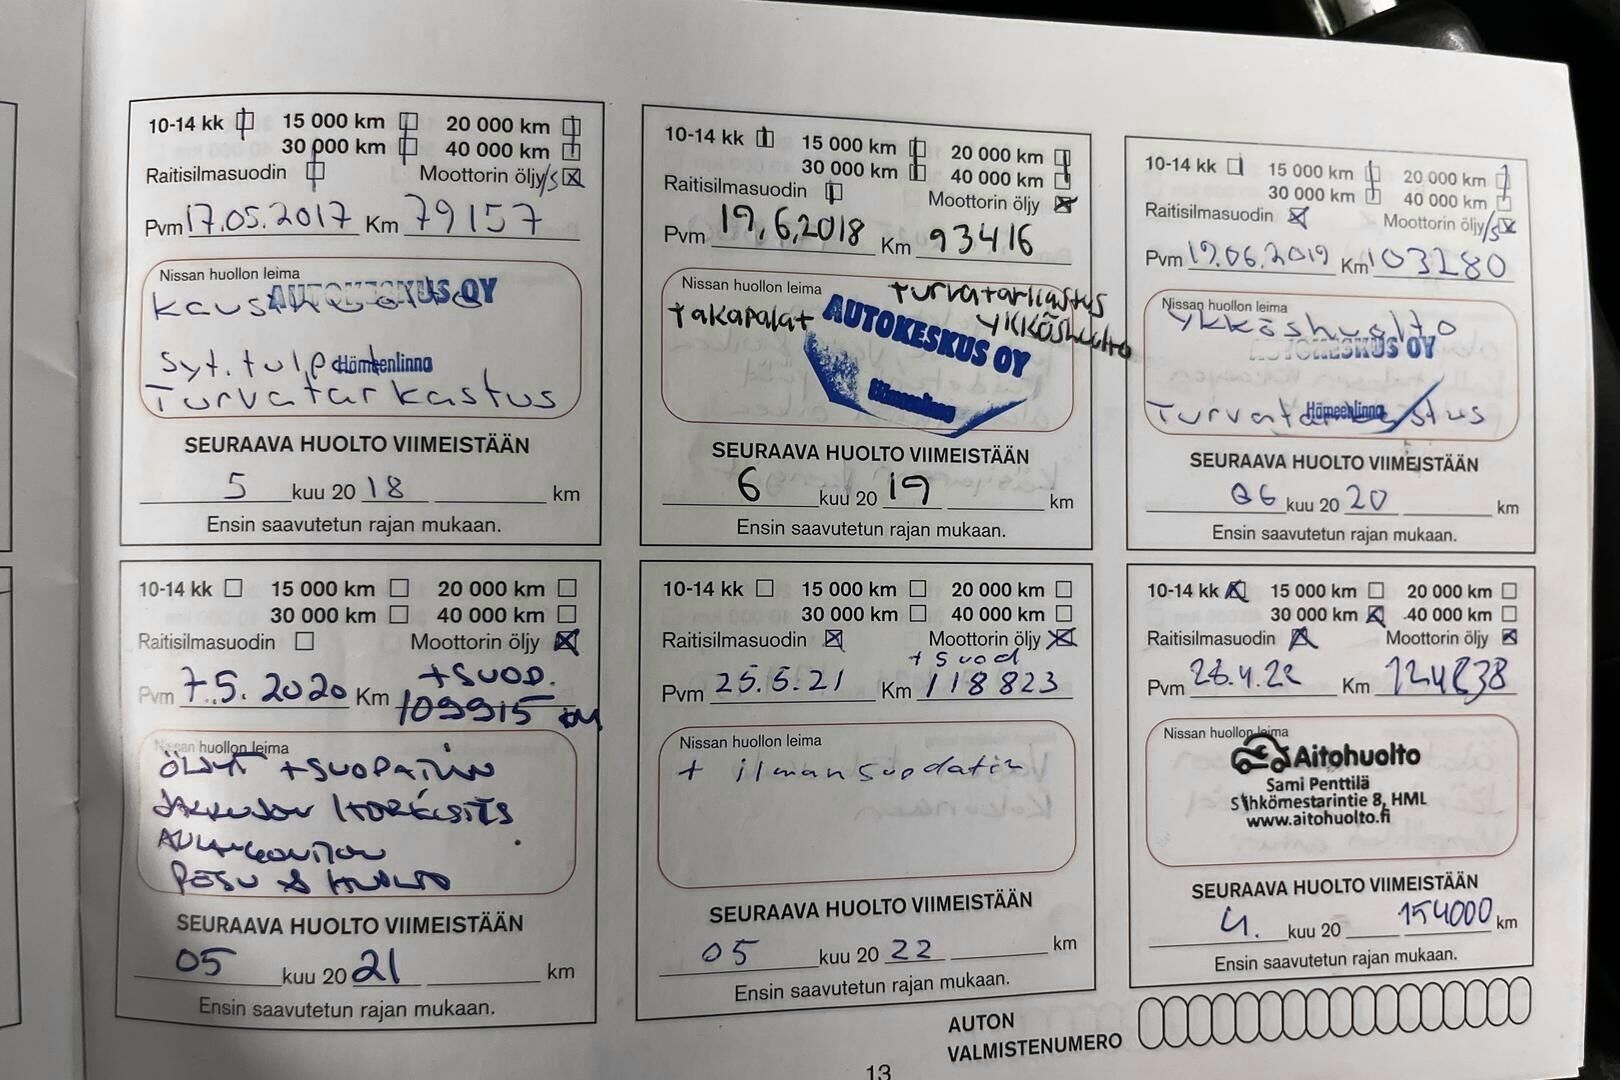 10-14 kk 15 000 km 20 000 km
30 000 km 40 000 km
Raitisilmasuodin Moottorin öljy/s
Pvm 17.05.2017 Km 79157
Nissan huollon leima
AUTOKESKUS OY
Syt. tulpat
Hämeenlinna
Turvatarkastus
SEURAAVA HUOLTO VIIMEISTÄÄN
5 kuu 20 18 km
Ensin saavutetun rajan mukaan.
10-14 kk 15 000 km 20 000 km
30 000 km 40 000 km
Raitisilmasuodin Moottorin öljy
Pvm 19.6.2018 Km 93416
Nissan huollon leima
turvatarkastus
takapalat ykköshuolto
AUTOKESKUS OY
Hämeenlinna
SEURAAVA HUOLTO VIIMEISTÄÄN
6 kuu 20 19 km
Ensin saavutetun rajan mukaan.
10-14 kk 15 000 km 20 000 km
30 000 km 40 000 km
Raitisilmasuodin Moottorin öljy/s
Pvm 19.06.2019 Km 103280
Nissan huollon leima
Ykköshuolto
AUTOKESKUS OY
Turvatarkastus
Hämeenlinna
SEURAAVA HUOLTO VIIMEISTÄÄN
06 kuu 20 20 km
Ensin saavutetun rajan mukaan.
10-14 kk 15 000 km 20 000 km
30 000 km 40 000 km
Raitisilmasuodin Moottorin öljy
+SUOD.
Pvm 7.5.2020 Km 109915 km
Nissan huollon leima
ÖLJYT +SUODATIN
PESU & HUOLTO
SEURAAVA HUOLTO VIIMEISTÄÄN
05 kuu 20 21 km
Ensin saavutetun rajan mukaan.
10-14 kk 15 000 km 20 000 km
30 000 km 40 000 km
Raitisilmasuodin Moottorin öljy
+ suod
Pvm 25.5.21 Km 118823
Nissan huollon leima
+ ilmansuodatin
SEURAAVA HUOLTO VIIMEISTÄÄN
05 kuu 20 22 km
Ensin saavutetun rajan mukaan.
10-14 kk 15 000 km 20 000 km
30 000 km 40 000 km
Raitisilmasuodin Moottorin öljy
Pvm 26.4.22 Km 124838
Nissan huollon leima
Aitohuolto
Sami Penttilä
Sähkömestarintie 8, HML
www.aitohuolto.fi
SEURAAVA HUOLTO VIIMEISTÄÄN
4. kuu 20 154000 km
Ensin saavutetun rajan mukaan.
AUTON
VALMISTENUMERO
13